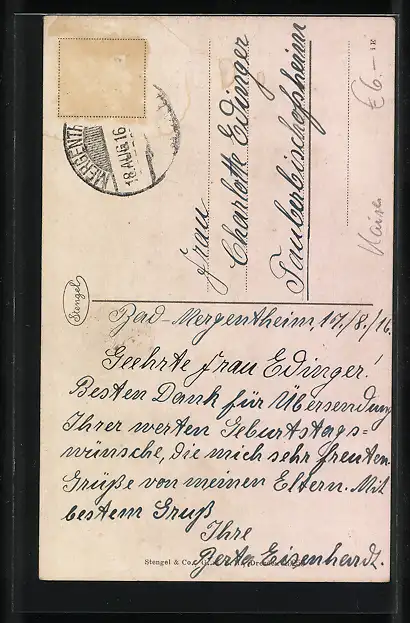 MERGENTH
18.AUG.16
Frau
Charlotte Edinger
Tauberbischofsheim
€6.-
1E
Kaiser
Stengel
Bad-Mergentheim 17./8./16.
Geehrte Frau Edinger!
Besten Dank für Übersendung
Ihrer werten Geburtstags-
wünsche, die mich sehr freuten.
Grüße von meinen Eltern. Mit
bestem Gruß
Ihre
Berta Eisenhardt.
Stengel & Co.